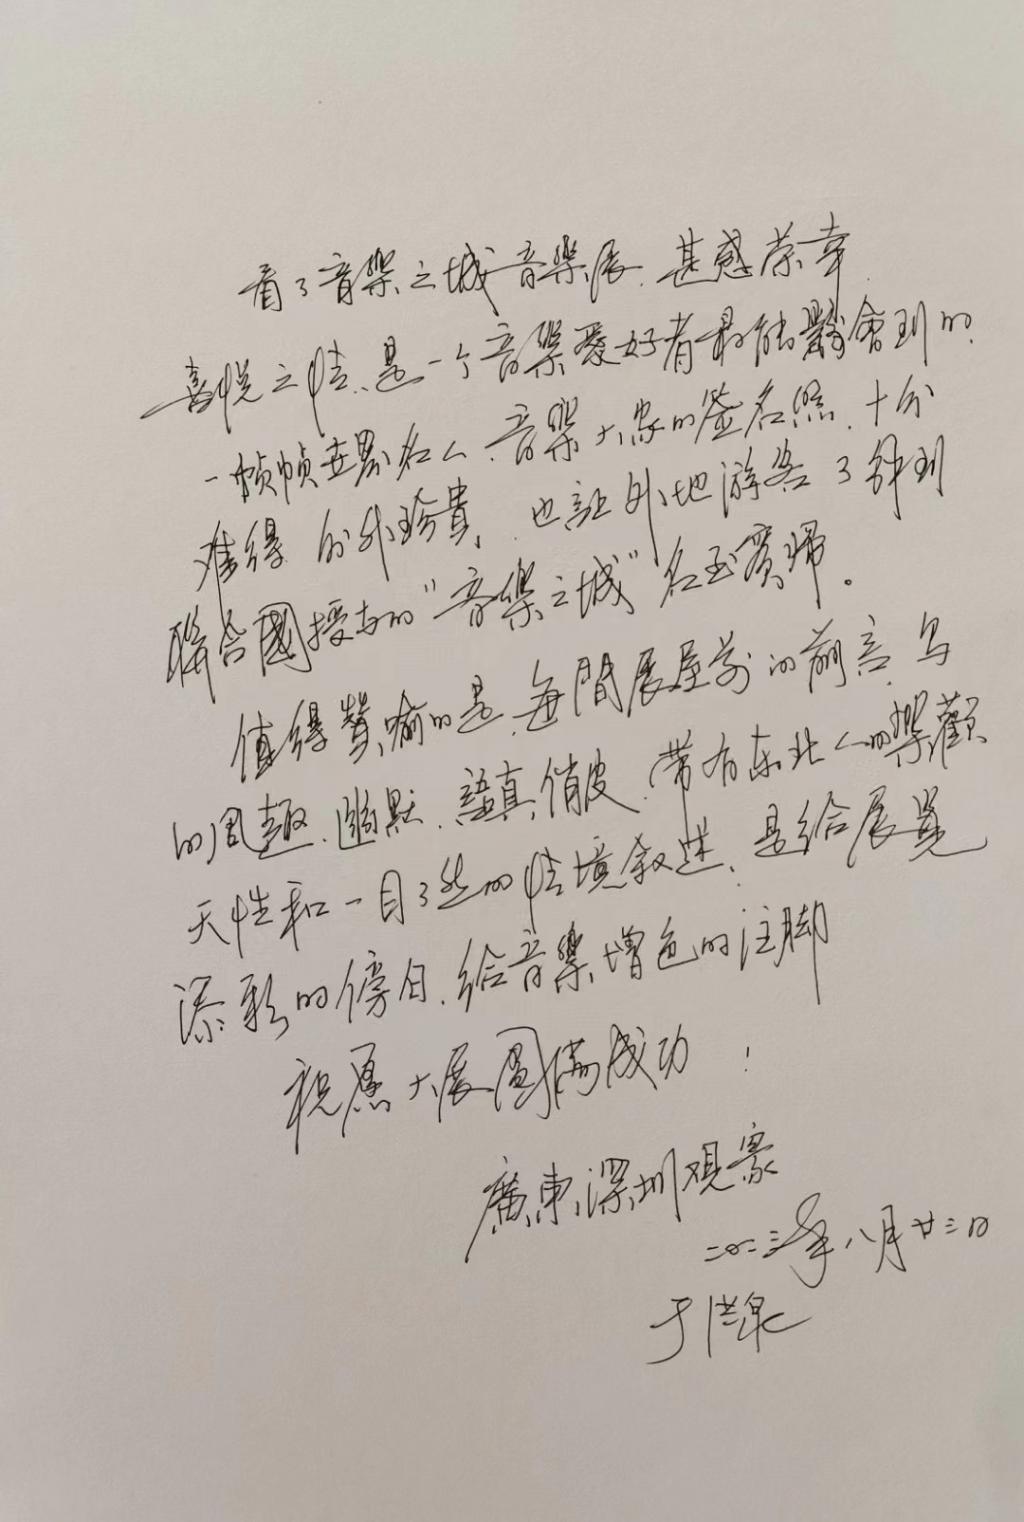 看了音樂之城音樂展，甚感荣幸
喜悦之情、是一个音樂爱好者最能體會到的、
一帧帧世界名人、音樂大家的签名照、十分
难得 的外珍貴，也讓外地游客了解到
聯合國授予的“音樂之城”名至實歸。
值得贊喻的是、每間展屋前的前言，写
的风趣、幽默、語真俏皮、带有东北人的樂觀
天性和一目了然的情境叙述、是给展覽
添彩的傍白、给音樂增色的注脚
祝愿大展圆满成功！
廣東深圳观衆
二〇二三年八月廿三日
于洪泉